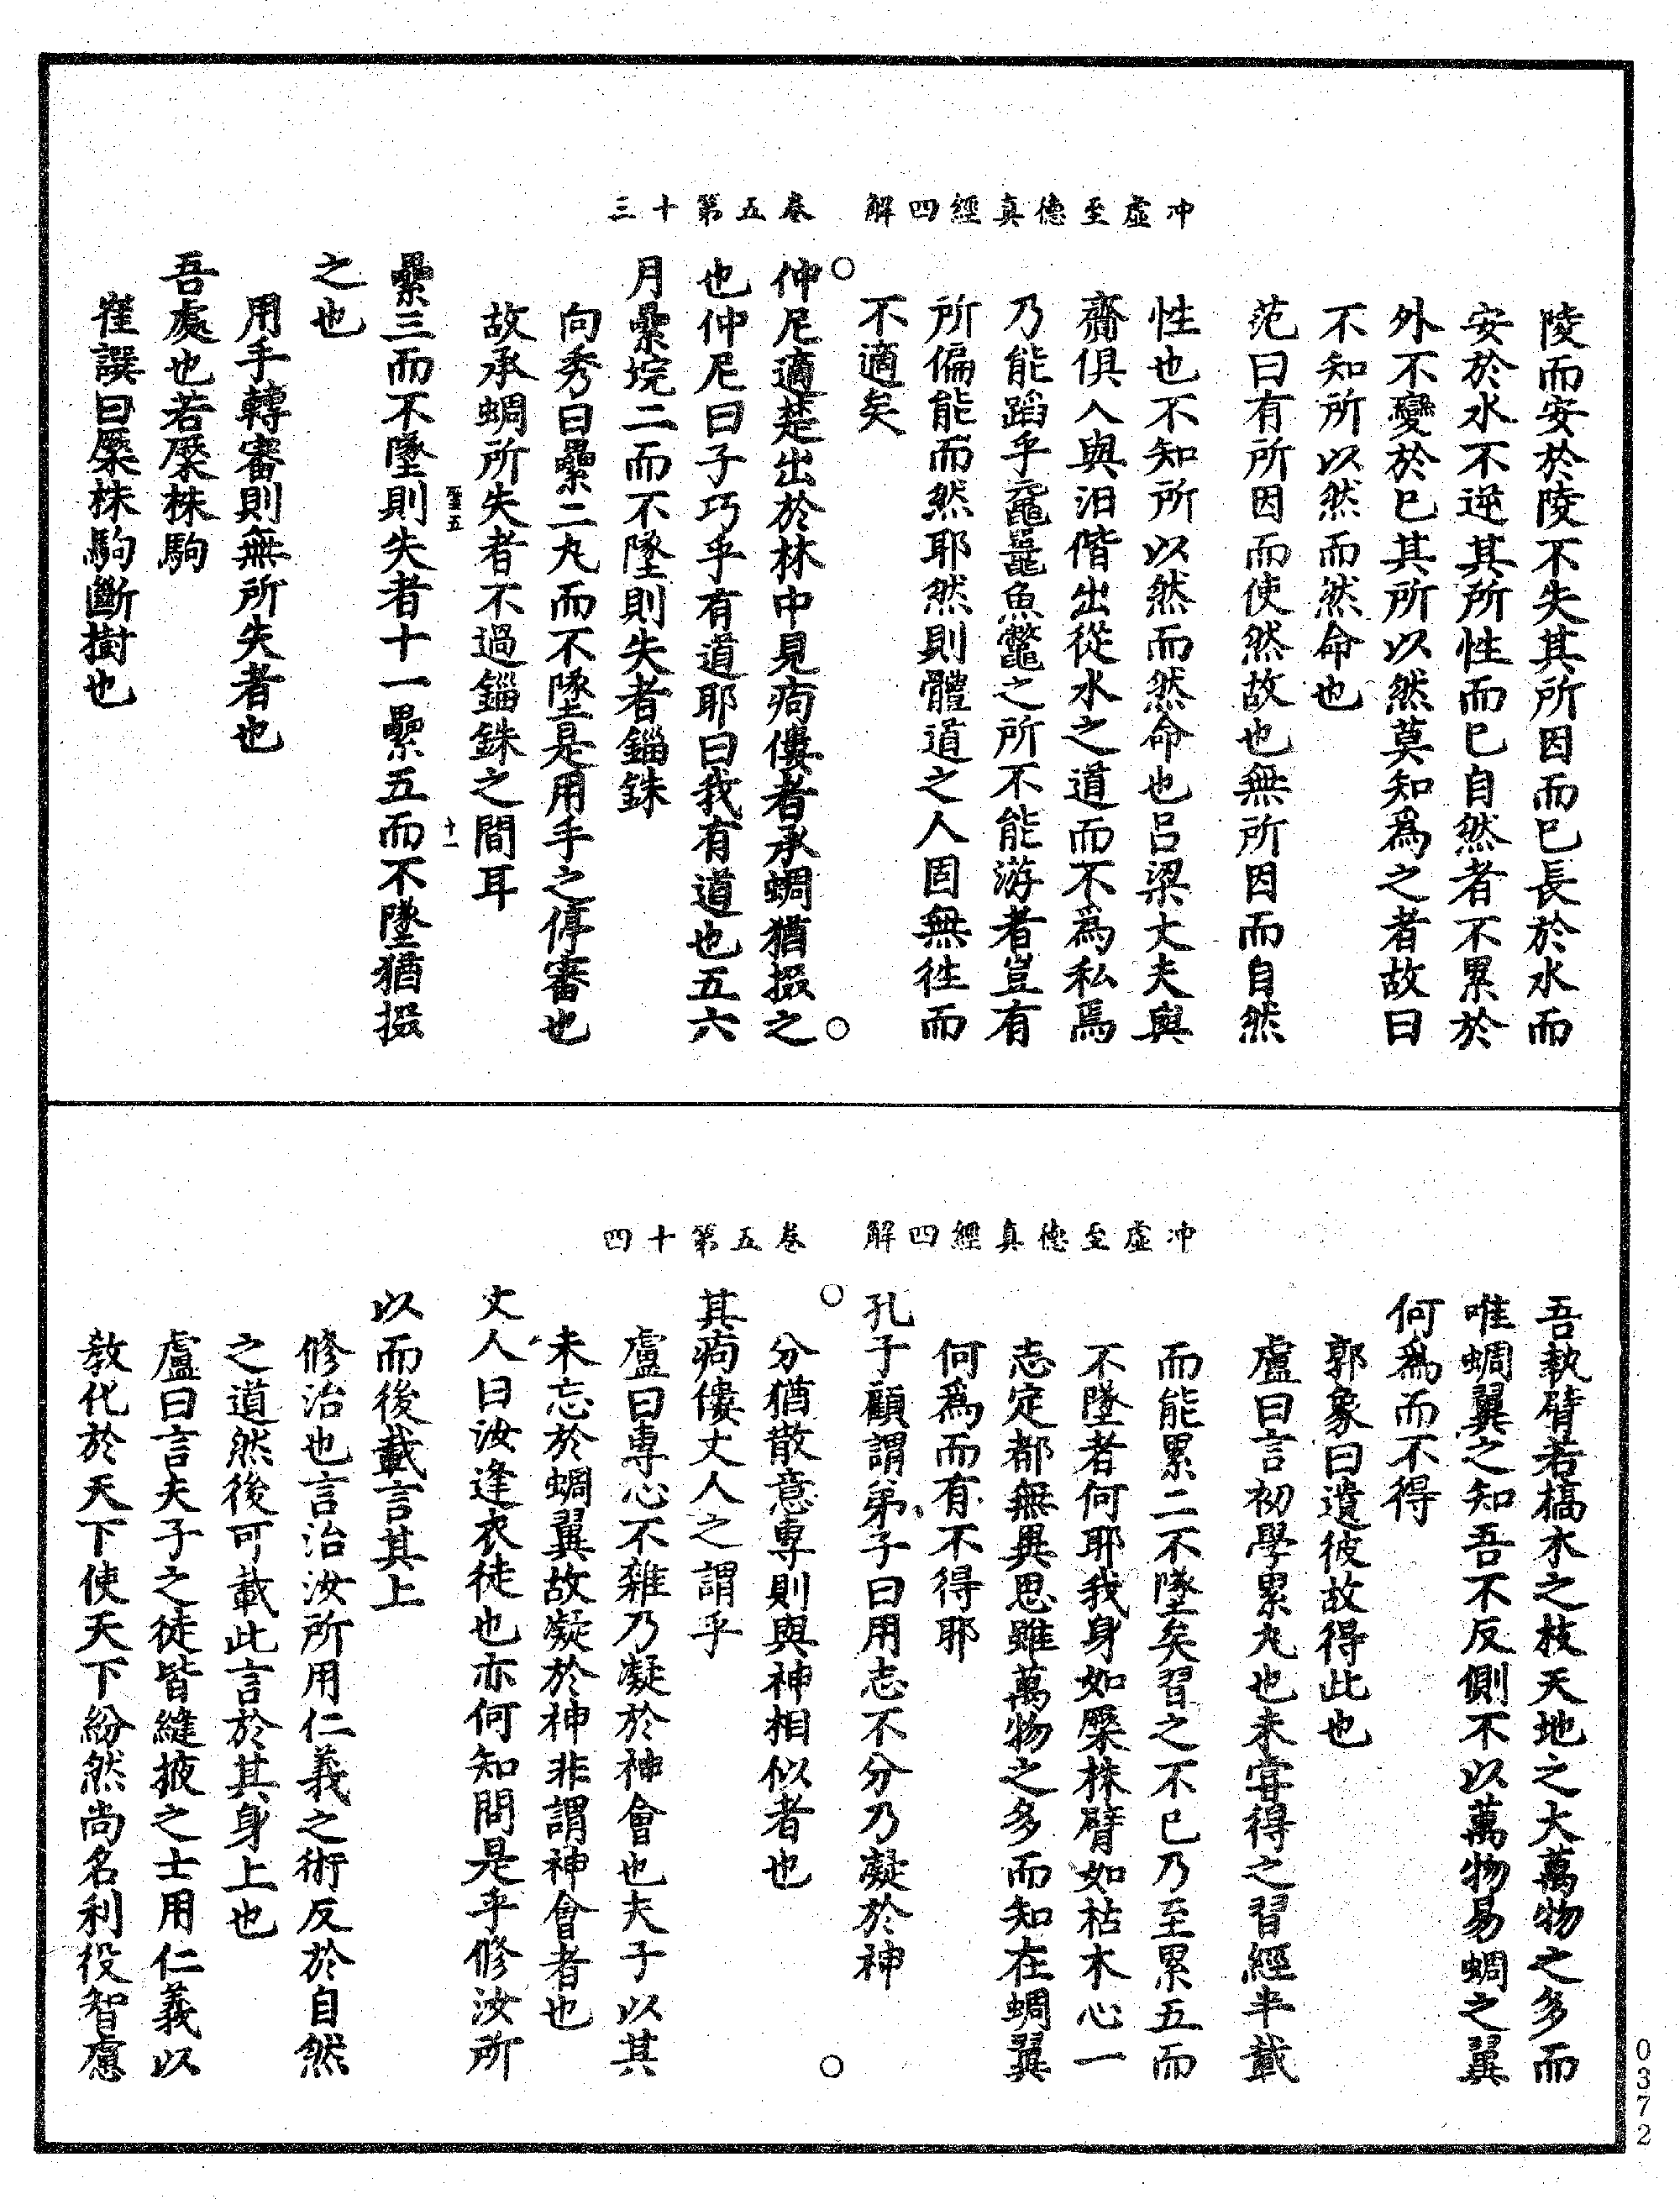 冲虛至德真經四解　卷五第十三
陵而安於陵不失其所因而已長於水而
安於水不逆其所性而已自然者不累於
外不變於已其所以然莫知為之者故曰
不知所以然而然命也
范曰有所因而使然故也無所因而自然
性也不知所以然而然命也呂梁丈夫與
齎俱入與汨偕出從水之道而不為私焉
乃能蹈乎黿鼉魚鼈之所不能游者豈有
所偏能而然耶然則體道之人固無徃而
不適矣
仲尼適楚出於林中見痀僂者承蜩猶掇之
也仲尼曰子巧乎有道耶曰我有道也五六
月纍垸二而不墜則失者錙銖
向秀曰纍二丸而不墜是用手之停審也
故承蜩所失者不過錙銖之間耳
十一
纍三而不墜則失者十一纍五而不墜猶掇
之也
用手轉審則無所失者也
吾處也若橜株駒
崔譔曰橜株駒斷樹也
冲虛至德真經四解　卷五第十四
吾執臂若槁木之枝天地之大萬物之多而
唯蜩翼之知吾不反側不以萬物易蜩之翼
何為而不得
郭象曰遺彼故得此也
盧曰言初學累丸也未甞得之習經半載
而能累二不墜矣習之不已乃至累五而
不墜者何耶我身如橜株臂如枯木心一
志定都無異思雖萬物之多而知在蜩翼
何為而有不得耶
孔子顧謂弟子曰用志不分乃凝於神
分猶散意専則與神相似者也
其痀僂丈人之謂乎
盧曰専心不雜乃凝於神會也夫子以其
未忘於蜩翼故凝於神非謂神會者也
丈人曰汝逢衣徒也亦何知問是乎修汝所
以而後載言其上
修治也言治汝所用仁義之術反於自然
之道然後可載此言於其身上也
盧曰言夫子之徒皆縫掖之士用仁義以
教化於天下使天下紛然尚名利役智慮
0372